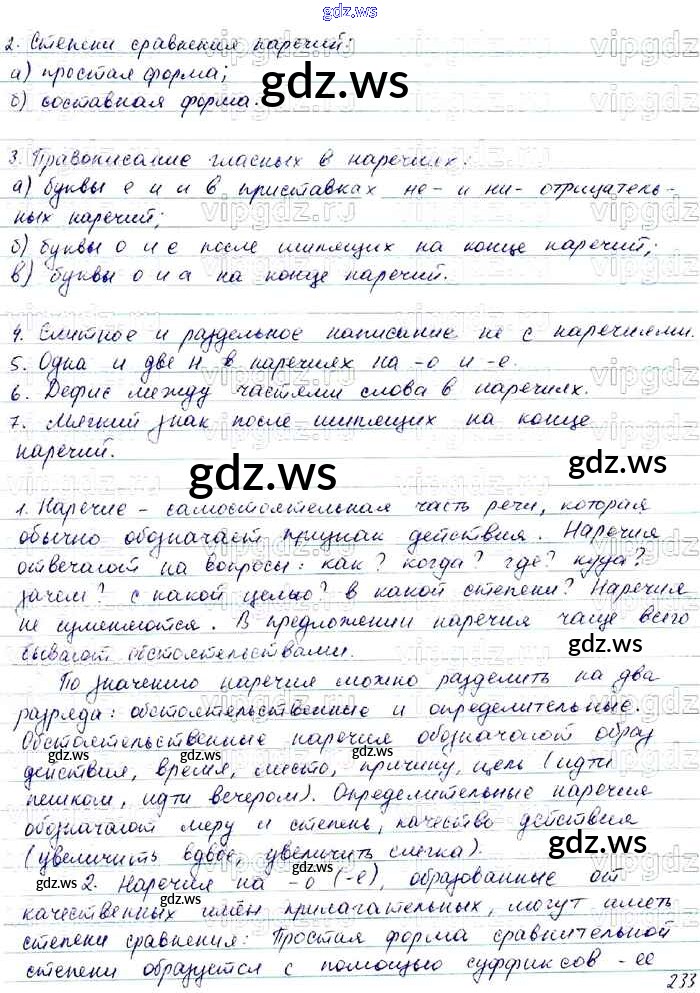 gdz.ws
2. Степени сравнения наречий:
а) простая форма;
б) составная форма.
3. Правописание гласных в наречиях:
а) буквы е и и в приставках не- и ни- отрицатель-
ных наречий;
б) буквы о и е после шипящих на конце наречий;
в) буквы о и а на конце наречий.
4. Слитное и раздельное написание не с наречиями.
5. Одна и две н в наречиях на -о и -е.
6. Дефис между частями слова в наречиях.
7. Мягкий знак после шипящих на конце
наречий.
1. Наречие – самостоятельная часть речи, которая
обычно обозначает признак действия. Наречия
отвечают на вопросы: как? когда? где? куда?
зачем? с какой целью? в какой степени? Наречия
не изменяются. В предложении наречия чаще всего
бывают обстоятельствами.
По значению наречия можно разделить на два
разряда: обстоятельственные и определительные.
Обстоятельственные наречия обозначают образ
действия, время, место, причину, цель (идти
пешком, идти вечером). Определительные наречия
обозначают меру и степень, качество действия
(увеличить вдвое, увеличить слегка).
2. Наречия на -о (-е), образованные от
качественных имён прилагательных, могут иметь
степени сравнения: Простая форма сравнительной
степени образуется с помощью суффиксов -ее
233